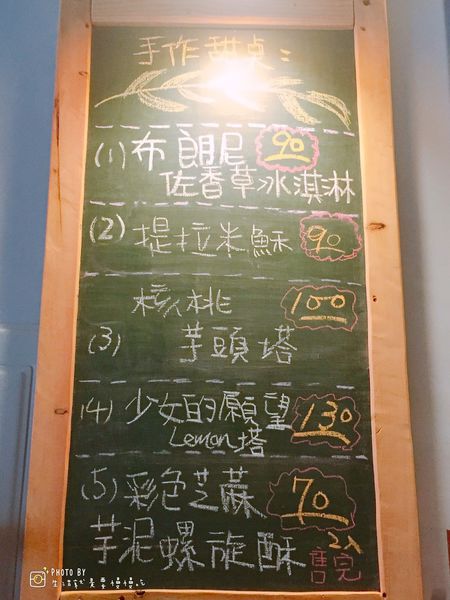 手作甜點：
(1) 布朗尼 90
佐香草冰淇淋
(2) 提拉米酥 90
核桃 100
(3) 芋頭塔
(4) 少女的願望 130
Lemon塔
(5) 彩色芝蔴 70
芋泥螺旋酥 2入
售完
PHOTO BY